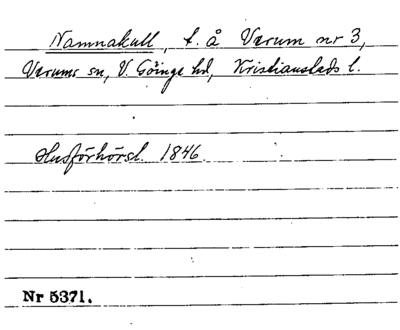 Namnakull, t. å Verum nr 3,
Verums sn, V. Göinge hd, Kristianstads l.
Husförhörsl. 1846.
Nr 5371.